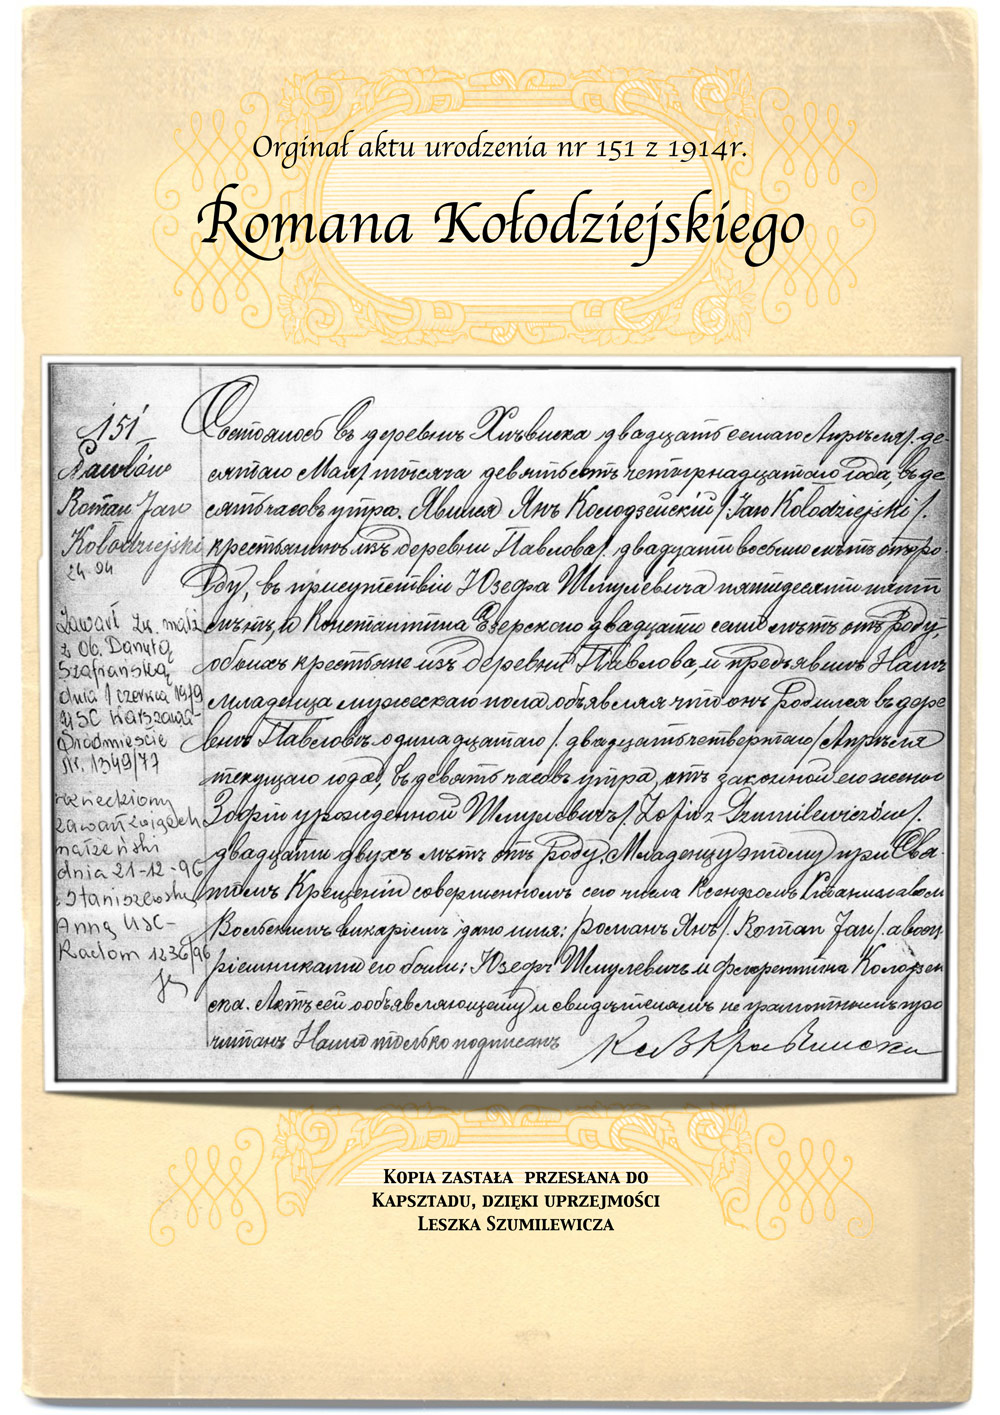 Orginał aktu urodzenia nr 151 z 1914r.
Romana Kołodziejskiego
151
Pawłów
Roman Jan
Kołodziejski
24.04
Zawarł zw. małż
z Ob. Danutą
Szafrańską
dnia 1 czerwca
USC Warszawa-
Śródmieście
Nr. 1349/77
zawarł związek
małżeński
dnia 21-12-96
Anną USC-
Radom 1236/96
Состоялось въ деревнѣ двадцать седьмаго Апрѣля /: де-
сятаго Мая :/ тысяча девятьсотъ четырнадцатаго года, въ де-
сять часовъ утра. Явился Янъ Колодзейскій /: Jan Kołodziejski :/
крестьянинъ изъ деревни Павлова, двадцати восьми лѣтъ отъ ро-
ду, въ присутствіи Юзефа Шмулевича пятидесяти пяти
лѣтъ, и Константина Езерского двадцати семи лѣтъ отъ роду,
обоихъ крестьяне изъ деревни Павлова, и предъявилъ Намъ
младенца мужескаго пола объявляя что онъ родился въ дере-
внѣ Павловѣ одинадцатаго /: двадцать четвертаго :/ Апрѣля
текущаго года, въ девять часовъ утра, отъ законной его жены
Зофіи урожденной Шмулевичъ /: Zofii z Szmulewiczów :/
двадцати двухъ лѣтъ отъ роду. Младенцу этому при Свя-
томъ Крещеніи совершенномъ сего числа Ксендзомъ Станиславомъ
викаріемъ дано имя: Романъ Янъ /: Roman Jan :/ а воспр-
ріемниками его были: Юзефъ Шмулевичъ и Флорентина Колодзей-
ска. Актъ сей объявляющему и свидѣтелямъ не грамотнымъ про-
читанъ Нами только подписанъ
Kopia zastała przesłana do
Kapsztadu, dzięki uprzejmości
Leszka Szumilewicza